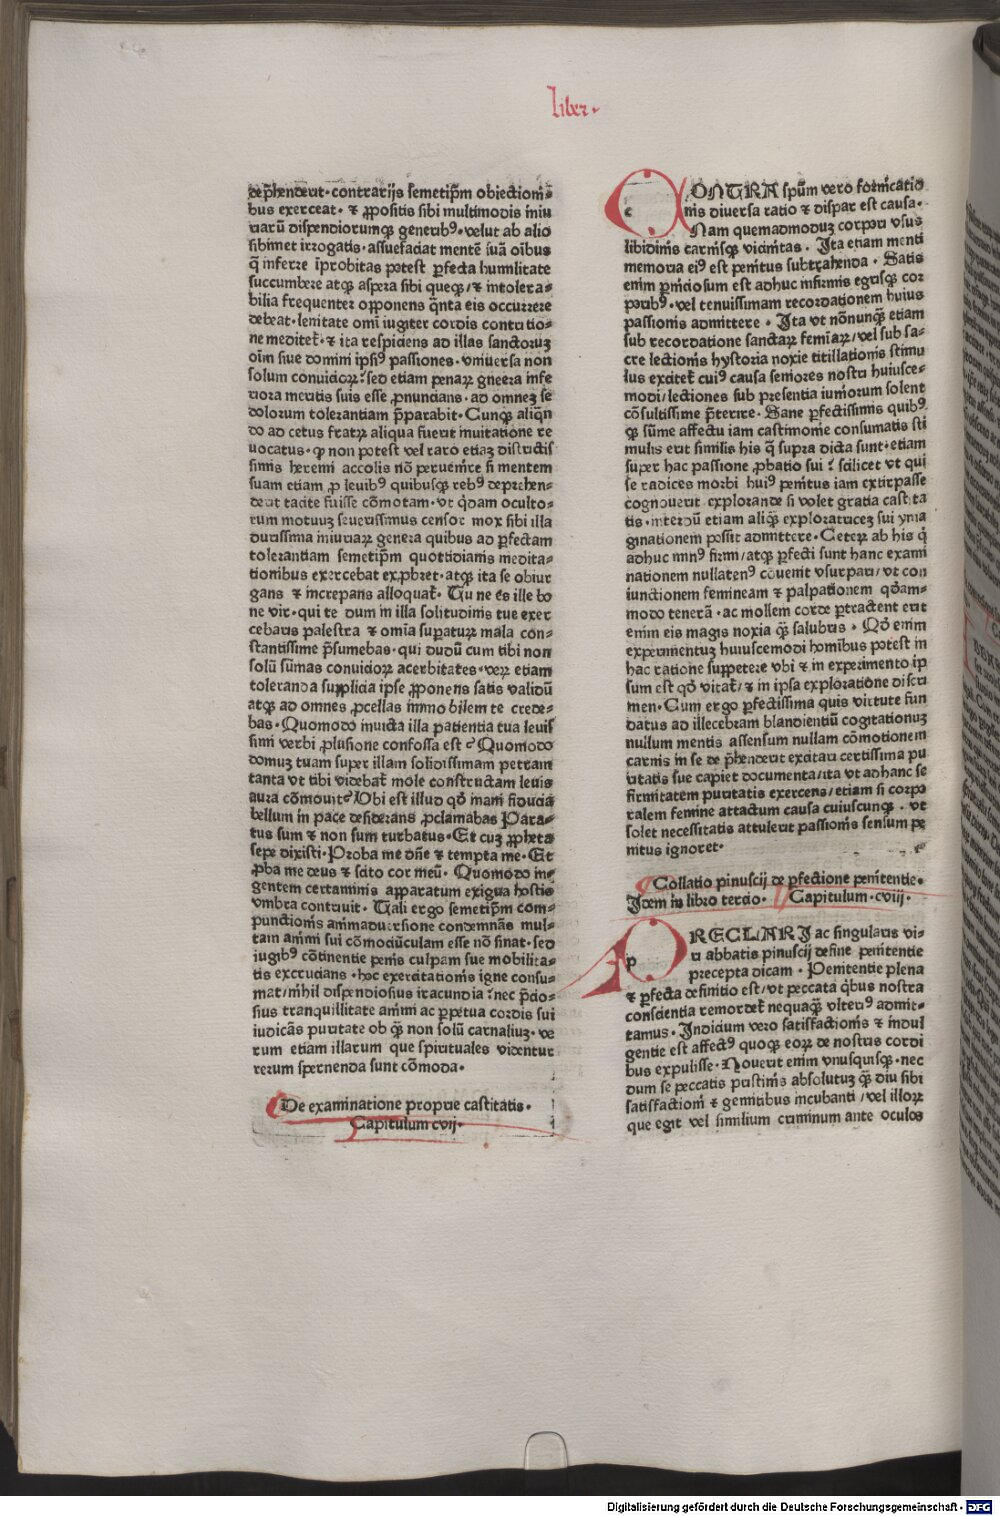 liber.
dep̄henderit. contrarijs semetip̄m obiectioni⸗
bus exerceat. ⁊ ꝓpositis sibi multimodis iniu
riarū dispendiorumqꝫ generibꝰ. velut ab alio
sibimet irrogatis. assuefaciat mentē suā oībus
q̄ inferre īprobitas potest ꝑfecta humilitate
succumbere atqꝫ aspera sibi queqꝫ/ ⁊ intolera⸗
bilia frequenter opponens q̄nta eis occurrere
debeat. lenitate omī iugiter cordis contritio⸗
ne meditet᷑. ⁊ ita respiciens ad illas sanctoruꝫ
oīm siue domini ipsiꝰ passiones. vniuersa non
solum conuicioꝝ: sed etiam penaꝝ gneera infe
riora meritis suis esse ꝓnuncians. ad omneꝫ se
dolorum tolerantiam p̄parabit. Cunqꝫ aliqn̄
do ad cetus fratꝝ aliqua fuerit inuitatione re
uocatus. qꝫ non potest vel raro etiaꝫ districtis
simis heremi accolis nō peruenire si mentem
suam etiam ꝓ leuibꝰ quibusqꝫ rebꝰ deprehen⸗
derit tacite fuisse cōmotam. vt qͥdam oculto⸗
rum motuuꝫ seuerissimus censor mox sibi illa
durissima iniuriaꝝ genera quibus ad ꝑfectam
tolerantiam semetip̄m quottidianis medita⸗
tionibus exercebat exp̱bret. atqꝫ ita se obiur
gans ⁊ increpans alloquat᷑. Tu ne es ille bo
ne vir. qui te dum in illa solitudinis tue exer
cebaris palestra ⁊ omīa suꝑaturꝫ mala con⸗
stantissime p̄sumebas. qui dudū cum tibi non
solū sūmas conuicioꝝ acerbitates. veꝝ etiam
toleranda supplicia ipse ꝓponens satis validū
atqꝫ ad omnes ꝓcellas immobilem te crede⸗
bas. Quomodo inuicta illa patientia tua leuis
simi verbi ꝓlusione confossa est? Quomodo
domuꝫ tuam super illam solidissimam petram
tanta vt tibi videbat᷑ mole constructam leuis
aura cōmouit? Ubi est illud qd̓ inani fiducia
bellum in pace desiderans ꝓclamabas Para⸗
tus sum ⁊ non sum turbatus. Et cuꝫ ꝓpheta
sepe dixisti. Proba me dn̄e ⁊ tempta me. Et
ꝓba me deus ⁊ scito cor meū. Quomodo in⸗
gentem certaminis apparatum exigua hostis
vmbra contriuit. Tali ergo semetip̄m com⸗
punctionis animaduersione condemnās mul⸗
tam animi sui cōmociūculam esse nō sinat. sed
iugibꝰ cōtinentie penis culpam sue mobilita⸗
tis excrucians. hoc exercitationis igne consu⸗
mat/ nihil dispendiosius iracundia: nec p̄cio⸗
sius tranquillitate animi ac perpetua cordis sui
iudicās puritate ob qͣꝫ non solū carnaliuꝫ. ve
rum etiam illarum que spirituales videntur
rerum spernenda sunt cōmoda.
De examinatione proprie castitatis.
Capitulum cvij.
CONTRA spūm vero fornicatio
nis diuersa ratio ⁊ dispar est causa.
Nam quemadmoduꝫ corpori vsus
libidinis carnisqꝫ vicinitas. Ita etiam menti
memoria eiꝰ est penitus subtrahenda. Satis
enim pernitiosum est adhuc infirmis egrisqꝫ cor
poribꝰ. vel tenuissimam recordationem huius
passionis admittere. Ita vt nōnunqꝫ etiam
sub recordatione sanctaꝝ femīaꝝ/ vel sub sa⸗
cre lectionis hystoria noxie titillationis stimu
lus excitet᷑ cuiꝰ causa seniores nostri huiusce⸗
modi/ lectiones sub presentia iuniorum solent
cōsultissime p̄terire. Sane ꝑfectissimis quibꝰ
qꝫ sūme affectu iam castimonie consumatis sti
mulis erit similis his q̄ supra dicta sunt. etiam
super hac passione ꝓbatio sui: scilicet vt qui
se radices morbi huiꝰ penitus iam extirpasse
cognouerit explorande si volet gratia castita
tis. interdū etiam aliqͣꝫ exploratriceꝫ sui yma
ginationem possit admittere. Ceteꝝ ab his q̄
adhuc minꝰ firmi/ atqꝫ ꝑfecti sunt hanc exami
nationem nullatenꝰ cōuenit vsurpari/ vt con
iunctionem femineam ⁊ palpationem qͦdam⸗
modo tenerā. ac mollem corde ꝑtractent erit
enim eis magis noxia qͣꝫ salubris. Qd̓ enim
experimentuꝫ huiuscemodi hominibus potest in
hac ratione suppetere vbi ⁊ in experimento ip
sum est qd̓ vitat᷑/ ⁊ in ipsa exploratione discri
men. Cum ergo ꝑfectissima quis virtute fun
datus ad illecebram blandientiū cogitationuꝫ
nullum mentis assensum nullam cōmotionem
carnis in se dep̄henderit excitari certissima pu
ritatis sue capiet documenta/ ita vt ad hanc se
firmitatem puritatis exercens/ etiam si corpo
ralem femine attactum causa cuiuscunqꝫ. vt
solet necessitatis attulerit passionis sensum pe
nitus ignoret.
Collatio pinuscij de ꝑfectione penitentie.
Idem in libro tercio. Capitulum. cviij.
PRECLARI ac singularis vi⸗
ri abbatis pinuscij define penitentie
precepta dicam. Penitentie plena
⁊ ꝑfecta definitio est/ vt peccata qͥbus nostra
conscientia remordet᷑ nequaqͣꝫ vlteriꝰ admit⸗
tamus. Indicium vero satisfactionis ⁊ indul
gentie est affectꝰ quoqꝫ eoꝝ de nostris cordi
bus expulisse. Nouerit enim vnusquisqꝫ. nec
dum se peccatis pristinis absolutuꝫ qͣꝫ diu sibi
satisfactioni ⁊ gemitibus incubanti/ vel illoꝝ
que egit vel similium criminum ante oculos
Digitalisierung gefördert durch die Deutsche Forschungsgemeinschaft - DFG